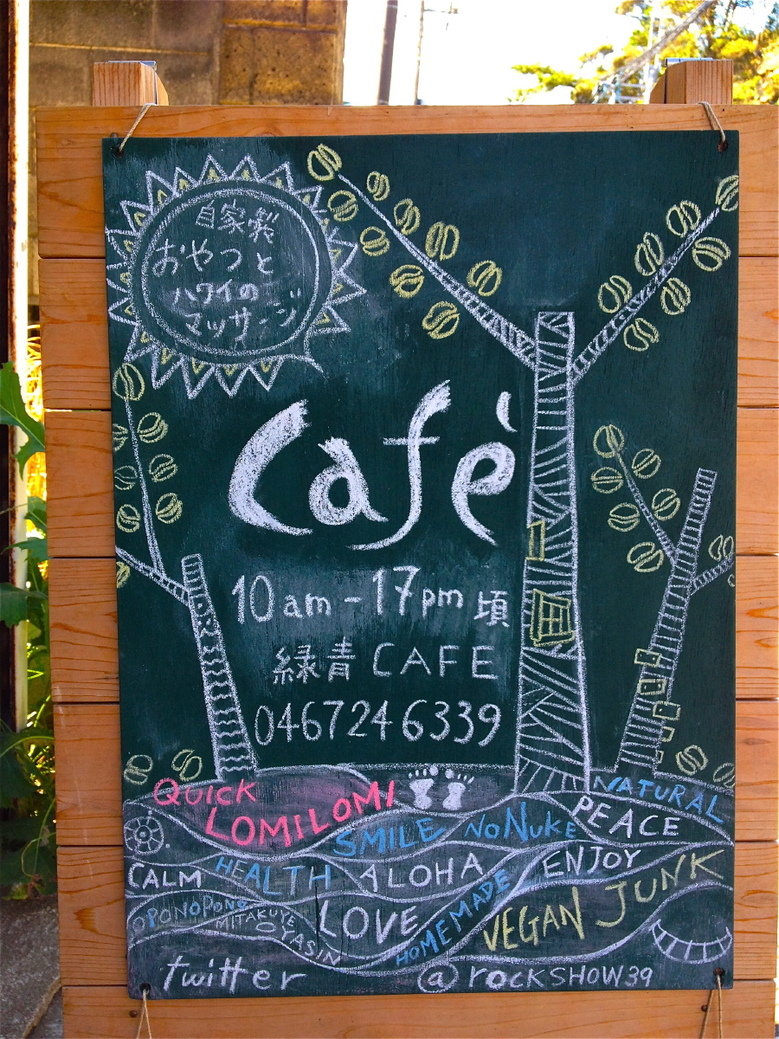 自家製
おやつと
ハワイの
マッサージ
Cafè
10am-17pm頃
緑青CAFE
0467246339
QUICK
LOMILOMI
NATURAL
SMILE
NO NUKE
PEACE
CALM
HEALTH
ALOHA
ENJOY
OPONOPONO
MITAKUYE
OYASIN
LOVE
HOMEMADE
VEGAN JUNK
twitter @ROCKSHOW39